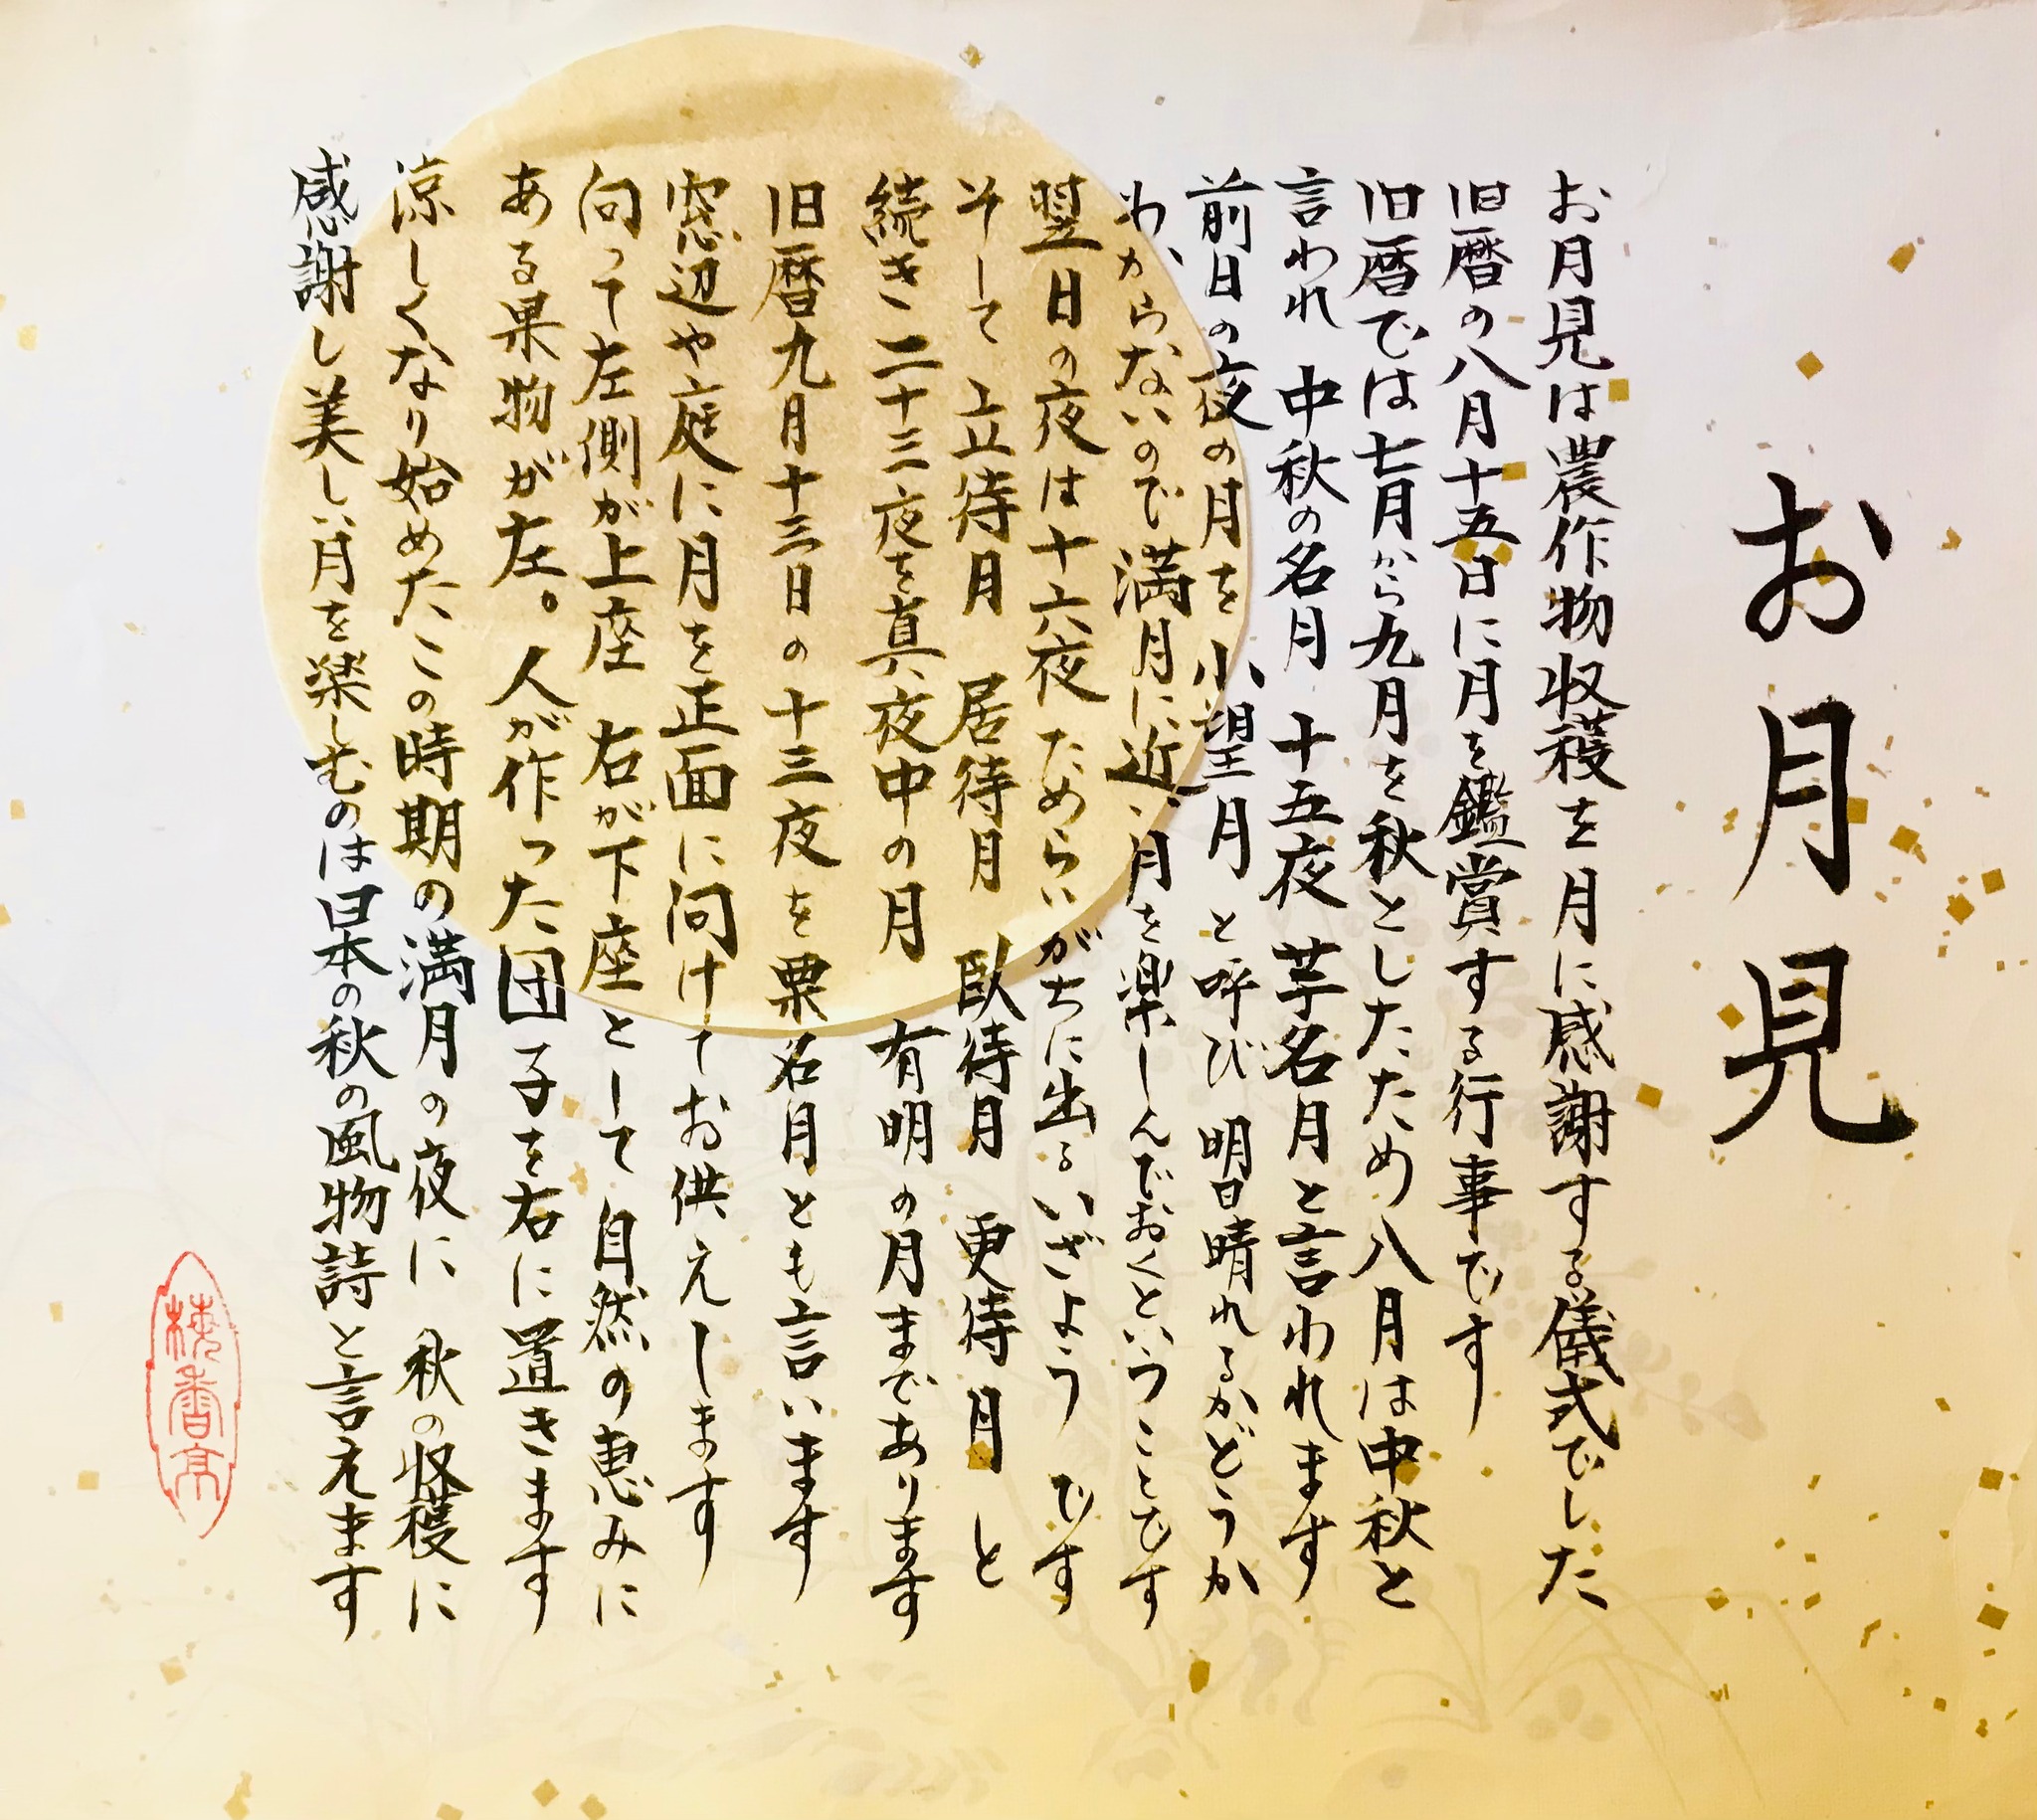 お月見
お月見は農作物収穫を月に感謝する儀式でした
旧暦の八月十五日に月を鑑賞する行事です
旧暦では七月から九月を秋としたため八月は中秋と
言われ 中秋の名月 十五夜 芋名月と言われます
前日の夜 夜の月を小望月と呼び 明日晴れるかどうか
わからないので満月に近い月を楽しんでおくということです
翌日の夜は十六夜 ためらいがちに出る いざよう です
そして 立待月 居待月 臥待月 更待月 と
続き 二十三夜を真夜中の月 有明の月まであります
旧暦九月十三日の十三夜を栗名月とも言います
窓辺や庭に月を正面に向けてお供えします
向って左側が上座 右が下座として 自然の恵みに
ある果物が左。人が作った団子を右に置きます
涼しくなり始めたこの時期の満月の夜に 秋の収穫に
感謝し美しい月を楽しむのは日本の秋の風物詩と言えます
梅香亭